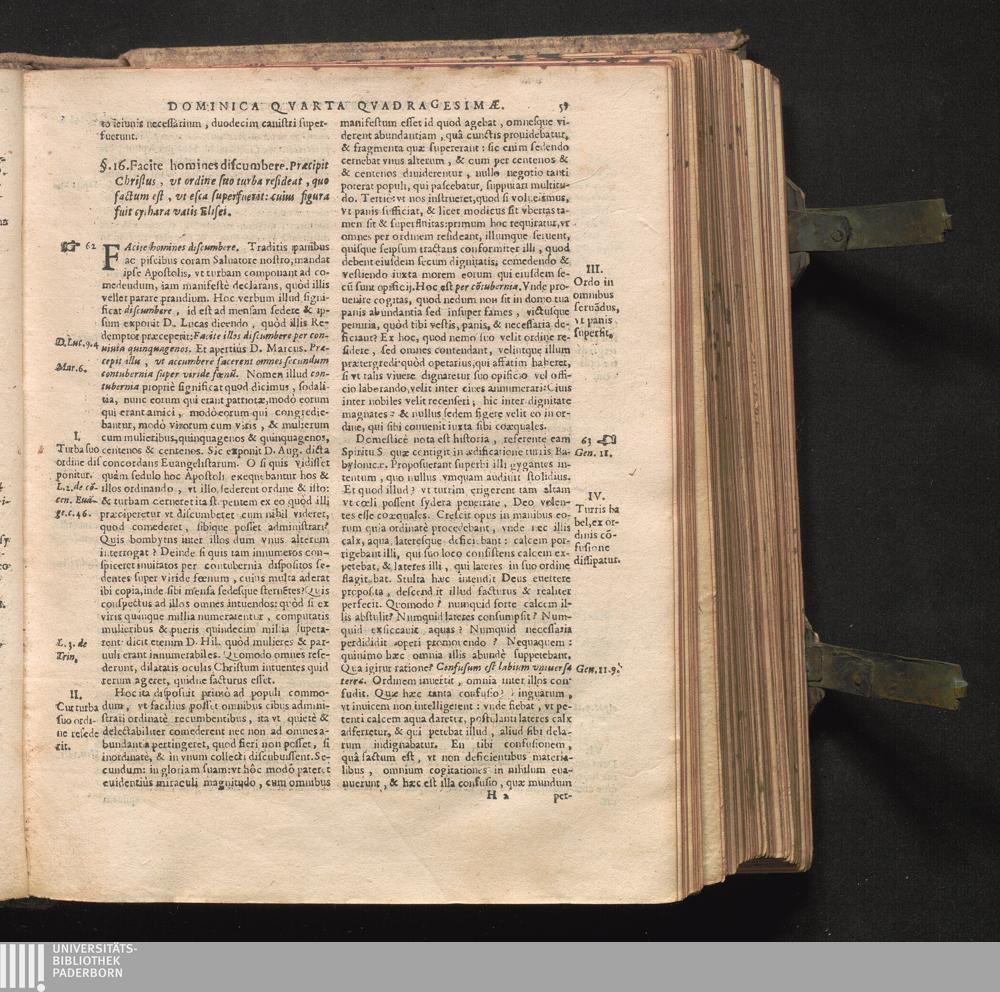 DOMINICA QVARTA QVADRAGESIMÆ. 59
to ieiunis necessarium, duodecim canistri super-
fuerunt.
§. 16. Facite homines discumbere. Præcipit
Christus, vt ordine suo turba resideat, quo
factum est, vt esca superfuerit: cuius figura
fuit cythara vatis Elisei.
62
FAcite homines discumbere. Traditis panibus
ac piscibus coram Saluatore nostro, mandat
ipse Apostolis, vt turbam componant ad co-
medendum, iam manifestè declarans, quòd illis
vellet parare prandium. Hoc verbum illud signi-
ficat discumbere, id est ad mensam sedere & ip-
sum exponit D. Lucas dicendo, quòd illis Re-
demptor præceperit: Facite illos discumbere per con-
D. Luc. 9. 4
uiuia quinquagenos. Et apertiùs D. Marcus. Præ-
cepit illis, vt accumbere facerent omnes secundum
Mar. 6.
contubernia super viride fœnũ. Nomen illud con-
tubernia propriè significat quod dicimus, sodali-
tia, nunc eorum qui erant patriotæ, modò eorum
qui erant amici, modò eorum qui congredie-
bantur, modò virorum cum viris, & mulierum
cum mulieribus, quinquagenos & quinquagenos,
I.
Turba suo
ordine dis
ponitur.
L. 2. de cō-
cen. Euā-
ge. c. 46.
centenos & centenos. Sic exponit D. Aug. dicta
concordans Euangelistarum. O si quis vidisset
quàm sedulo hoc Apostoli exequebantur hos &
illos ordinando, vt illo sederent ordine & isto:
& turbam cerneret ita stupentem ex eo quòd illi
præciperetur vt discumberet cum nihil videret,
quod comederet, sibique posset administrari?
Quis bombytus inter illos dum vnus alterum
interrogat? Deinde si quis tam innumeros con-
spiceret inuitatos per contubernia dispositos se-
dentes super viride fœnum, cuius multa aderat
ibi copia, inde sibi mensa sedesque sternētes? Quis
conspectus ad illos omnes intuendos: quòd si ex
viris quinque millia numerarentur, computatis
mulieribus & pueris quindecim millia supera-
L. 3. de
Trin.
rent: dicit etenim D. Hil. quòd mulieres & par-
uuli erant innumerabiles. Quomodo omnes rese-
derunt, dilatatis oculis Christum intuentes quid
rerum ageret, quidue facturus esset.
II.
Cur turba
suo ordi-
ne resede-
rit.
Hoc ita disposuit primò ad populi commo-
dum, vt facilius posset omnibus cibus admini-
strati ordinatè recumbentibus, ita vt quietè &
delectabiliter comederent nec non ad omnes a-
bundantia pertingeret, quod fieri non posset, si
inordinatè, & in vnum collecti discubuissent. Se-
cundum: in gloriam suam: vt hôc modò pateret
euidentiùs miraculi magnitudo, cum omnibus
manifestum esset id quod agebat, omnesque vi-
derent abundantiam, quâ cunctis prouidebatur,
& fragmenta quæ supererant: sic enim sedendo
cernebat vnus alterum, & cum per centenos &
& centenos diuiderentur, nullo negotio tanti
poterat populi, qui pascebatur, suppurari multitu-
do. Tertiè: vt nos instrueret, quod si voluerimus,
vt panis sufficiat, & licet modicus sit vbertas ta-
men sit & superfluitas: primum hoc requiratur, vt
omnes per ordinem resideant, illumque seruent,
quisque seipsum tractans conformiter illi, quod
debent eiusdem secum dignitatis; comedendo &
vestiendo iuxta morem eorum qui eiusdem se-
cũ sunt opificij. Hoc est per cōtubernia. Vnde pro-
III.
Ordo in
omnibus
seruādus,
vt panis
supersit.
uenire cogitas, quod nedum non sit in domo tua
panis abundantia sed insuper fames, victusque
penuria, quòd tibi vestis, panis, & necessaria de-
ficiant? Ex hoc, quod nemo suo velit ordine re-
sidere, sed omnes contendant, velintque illum
prætergredi: quòd operarius, qui affatim haberet,
si vt talis viuere dignaretur suo opificio vel offi-
cio laborando, velit inter ciues annumerari: Ciuis
inter nobiles velit recenseri; hic inter dignitate
magnates: & nullus sedem figere velit eo in or-
dine, qui sibi conuenit iuxta sibi coæquales.
Domesticè nota est historia, referente eam
63
Gen. 11.
Spiritu S. quæ contigit in ædificatione turris Ba-
bylonicæ. Proposuerant superbi illi gygantes in-
tentum, quo nullus vmquam audiuit stolidius.
Et quod illud? vt turrim erigerent tam altam
vt cœli possent sydera penetrare, Deo volen-
IV.
Turris ba
bel, ex or-
dinis cō-
fusione
dissipatur.
tes esse coæquales. Crescit opus in manibus eo-
rum quia ordinatè procedebant, vnde nec illis
calx, aqua, lateresque deficiebant: calcem por-
rigebant illi, qui suo loco consistens calcem ex-
petebat, & lateres illi, qui lateres in suo ordine
flagitabat. Stulta hæc intendit Deus euertere
proposita, descendit illud facturus & realiter
perfecit. Quomodo? numquid forte calcem il-
lis abstulit? Numquid lateres consumpsit? Num-
quid exsiccauit aquas? Numquid necessaria
perdididit operi promouendo? Nequaquem:
quinimo hæc omnia illis abundè suppetebant.
Qua igitur ratione? Confusum est labium vniuersæ
Gen. 11. 9.
terræ. Ordinem inuertit, omnia inter illos con-
fudit. Quæ hæc tanta confusio? linguarum,
vt inuicem non intelligerent: vnde fiebat, vt pe-
tenti calcem aqua daretur, postulanti lateres calx
afferretur, & qui petebat illud, aliud sibi dela-
tum indignabatur. En tibi confusionem,
quâ factum est, vt non deficientibus materia-
libus, omnium cogitationes in nihilum eua-
nuerunt, & hæc est illa confusio, quæ mundum
H 2 per-
UNIVERSITÄTS-
BIBLIOTHEK
PADERBORN